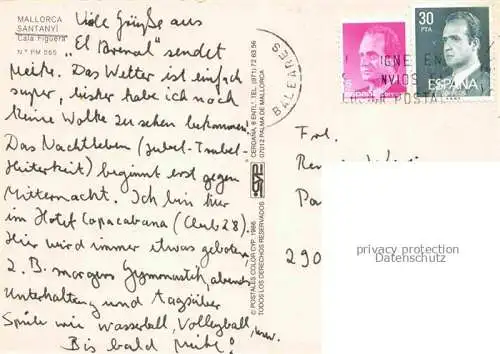 MALLORCA
SANTANYÍ
Cala Figuera
N.º PM 065
Viele Grüße aus
"El Arenal" sendet
Meike. Das Wetter ist einfach
super, bisher habe ich noch
keine Wolke zu sehen bekommen.
Das Nachtleben (Jubel-Trubel-
Heiterkeit) beginnt erst gegen
Mitternacht. Ich bin hier
im Hotel Copacabana (Club 28).
Hier wird immer etwas geboten,
z.B. morgens Gymnastik, abends
Unterhaltung und tagsüber
Spiele wie Wasserball, Volleyball, usw.
Bis bald Meike!
© POSTALES COLOR CYP, 1986
TODOS LOS DERECHOS RESERVADOS
CERDANA, 6 ENTL.º TEL. (971) 72 63 56
07012 PALMA DE MALLORCA
BALEARES
IGNE EN
NVIOS
POSTAL
30
PTA
ESPAÑA
Frl.
290
privacy protection
Datenschutz